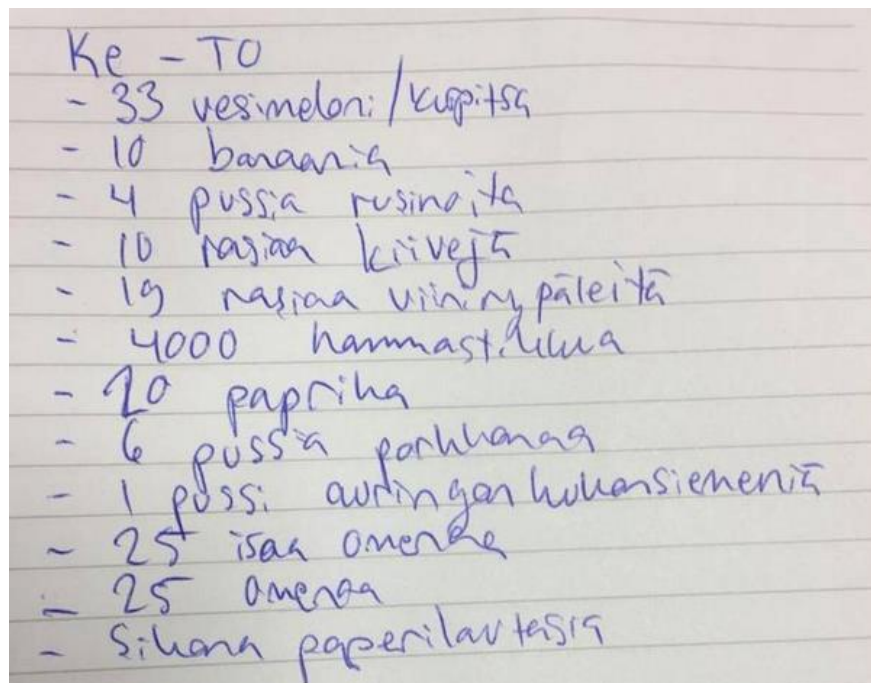 Ke - TO
- 33 vesimeloni/kupitsa
- 10 banaania
- 4 pussia rusinoita
- 10 rasiaa kiivejä
- 19 rasiaa viinirypäleitä
- 4000 hammastikkua
- 20 paprika
- 6 pussia porkkanaa
- 1 pussi auringonkukansiemeniä
- 25 isoa omenaa
- 25 omenaa
- Sikana paperilautasia